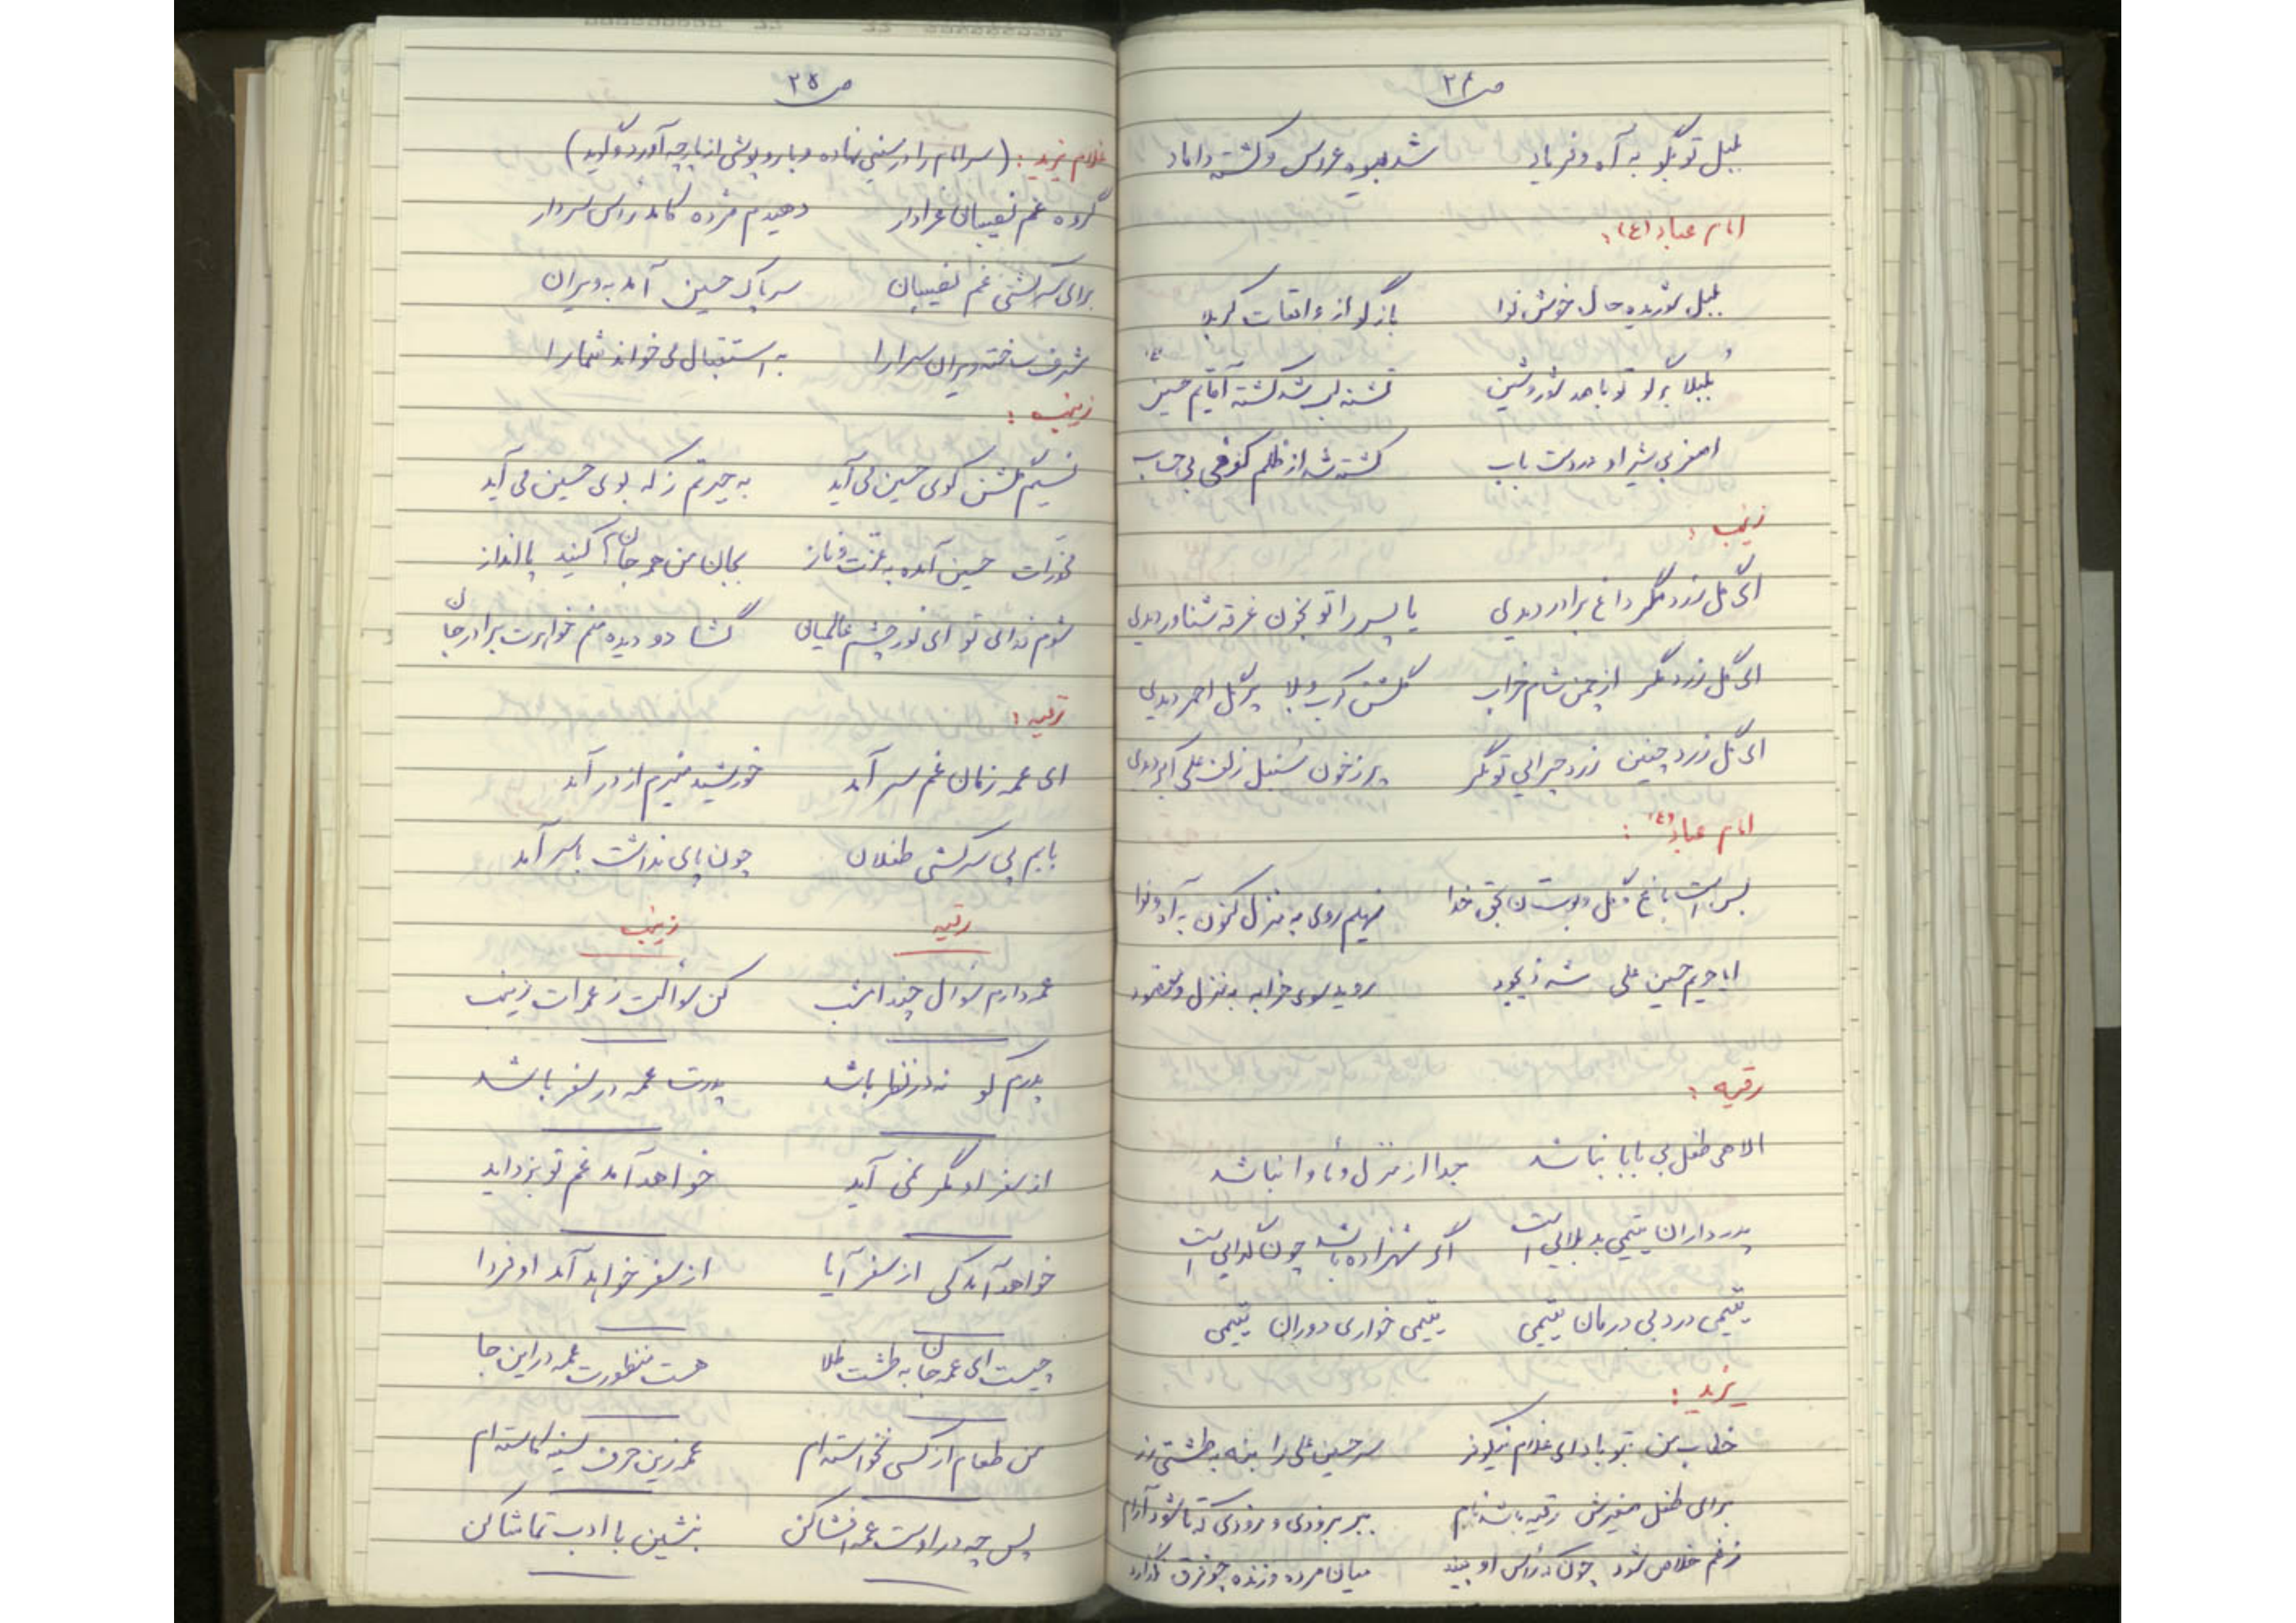 ص ۲۴
بلبل تو بگو به آه و فریاد شد بیوه عروس و کشته داماد
امام عباد (ع):
بلبل شوریده حال خوش نوا بازگو از واقعات کربلا
بلبلا برگو تو با صد شور و شین تشنه لب شد کشته آقایم حسین (ع)
اصغر بی شیر او در دست باب کشته شد از ظلم کوفی بی حساب
زینب:
ای گل زرد مگر داغ برادر دیدی یا پسر را تو بخون غرقه شناور دیدی
ای گل زرد مگر از چمن شام خراب گلشن کرب و بلا پر گل احمر دیدی
ای گل زرد چنین زرد چرایی تو مگر پر ز خون سنبل زلف علی اکبر دیدی
امام عباد (ع):
بس است باغ و گل و بوستان بحق خدا نهیم روی به منزل کنون به آه و نوا
ایا حریم حسین علی شه ذیجود روید سوی خرابه به منزل و مقصود
رقیه:
الاهی طفل بی بابا نباشد جدا از منزل و مأوا نباشد
پدر داران یتیمی بد بلایی است اگر شهزاده باشد چون گدایی است
یتیمی درد بی درمان یتیمی یتیمی خواری دوران یتیمی
یزید:
خطاب من بتو باد ای غلام نیکوفر سر حسین علی را بنه به طشتی زر
برای طفل صغیرش رقیه باشد نام ببر بزودی و زودی که تا شود آرام
ز غم خلاص شود چونکه رأس او بیند میان مرده و زنده چو فرق نگذارد
ص ۲۵
غلام یزید: (سر امام را در سینی نهاده و با روپوشی از پارچه آورد و گوید)
گروه غم نصیبان عزادار دهیدم مژده کامد رأس سردار
برای سرکشی غم نصیبان سر پاک حسین آمد به ویران
شرف ساخته ویران سرا را به استقبال می خواند شما را
زینب:
نسیم گلشن کوی حسین می آید به حیرتم ز که بوی حسین می آید
مخدرات حسین آمده به عزت و ناز بجان من همه جان کنید پا انداز
شوم فدای تو ای نور چشم عالمیان گشا دو دیده منم خواهرت برادر جان
رقیه:
ای عمه زمان غم سر آمد خورشید منیرم از در آمد
بابم پی سرکشی طفلان چون پای نداشت با سر آمد
رقیه زینب
عمه دارم سوال چند امشب کن سوالت ز عمه ات زینب
پدرم کو نه در نظر باشد پدرت عمه در سفر باشد
از سفر او مگر نمی آید خواهد آمد غم تو بزداید
خواهد آمد کی از سفر آیا از سفر خواهد آمد او فردا
چیست ای عمه جان به طشت طلا هست منظورت عمه در این جا
من طعام از کسی نخواسته ام عمه زین حرف سینه کاسته ام
پس چه در اوست عمه افشا کن بنشین با ادب تماشا کن